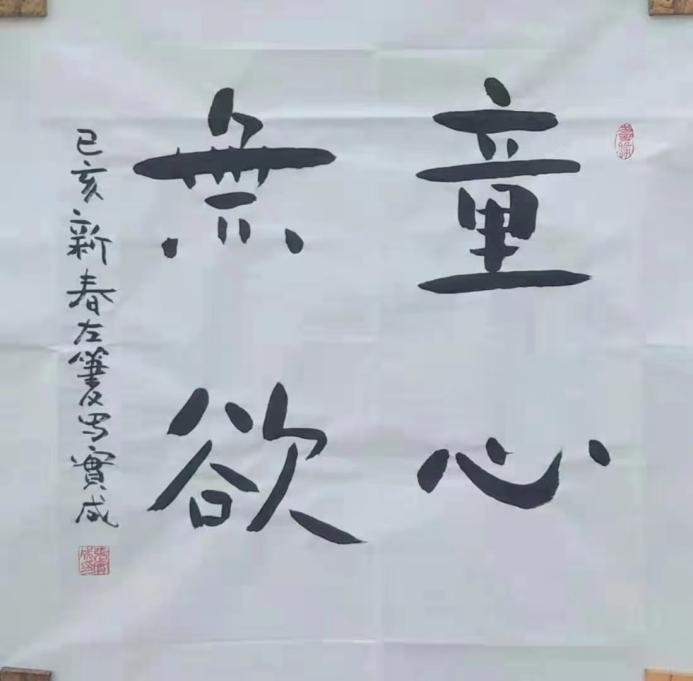 童心
無欲
己亥新春左筆寫實成